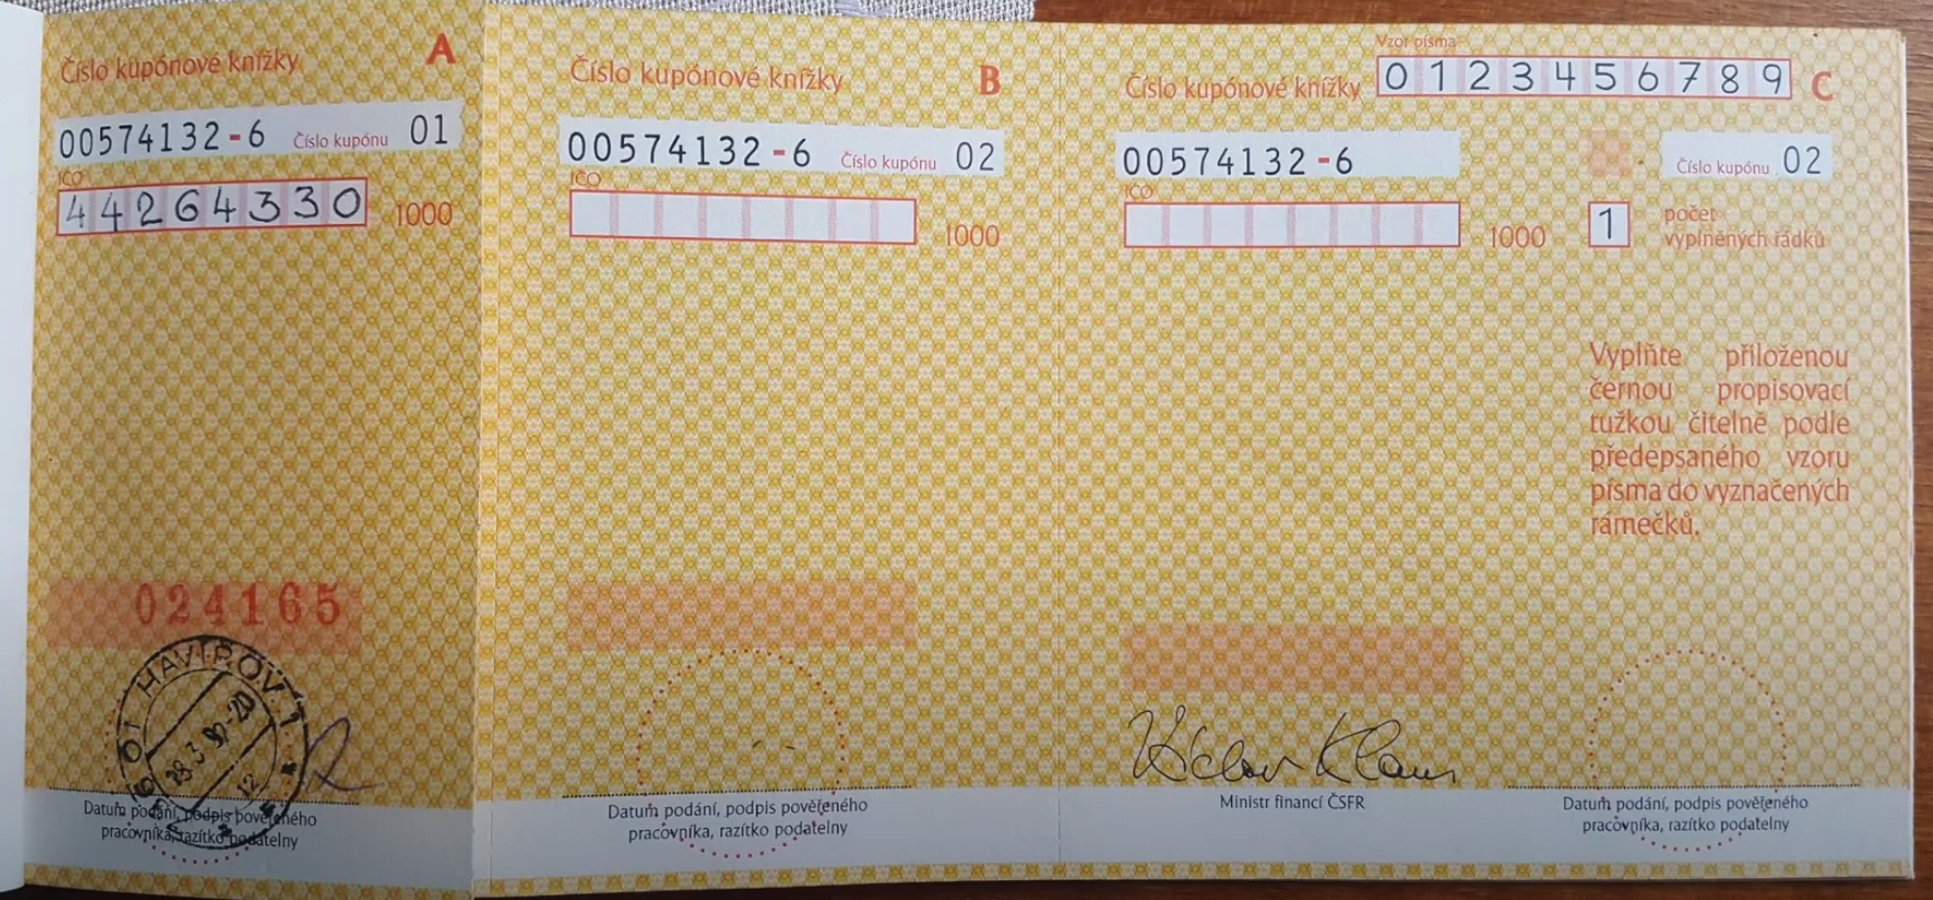 Číslo kupónové knížky A
00574132-6 Číslo kupónu 01
IČO
44264330 1000
024165
HAVÍŘOV 1
28.3 92-20
12
Datum podání, podpis pověřeného
pracovníka, razítko podatelny
Číslo kupónové knížky B
00574132-6 Číslo kupónu 02
IČO
1000
Datum podání, podpis pověřeného
pracovníka, razítko podatelny
Vzor písma
Číslo kupónové knížky 0123456789 C
00574132-6 Číslo kupónu 02
IČO
1000 1 počet
vyplněných řádků
Vyplňte přiloženou
černou propisovací
tužkou čitelně podle
předepsaného vzoru
písma do vyznačených
rámečků.
Václav Klaus
Ministr financí ČSFR
Datum podání, podpis pověřeného
pracovníka, razítko podatelny